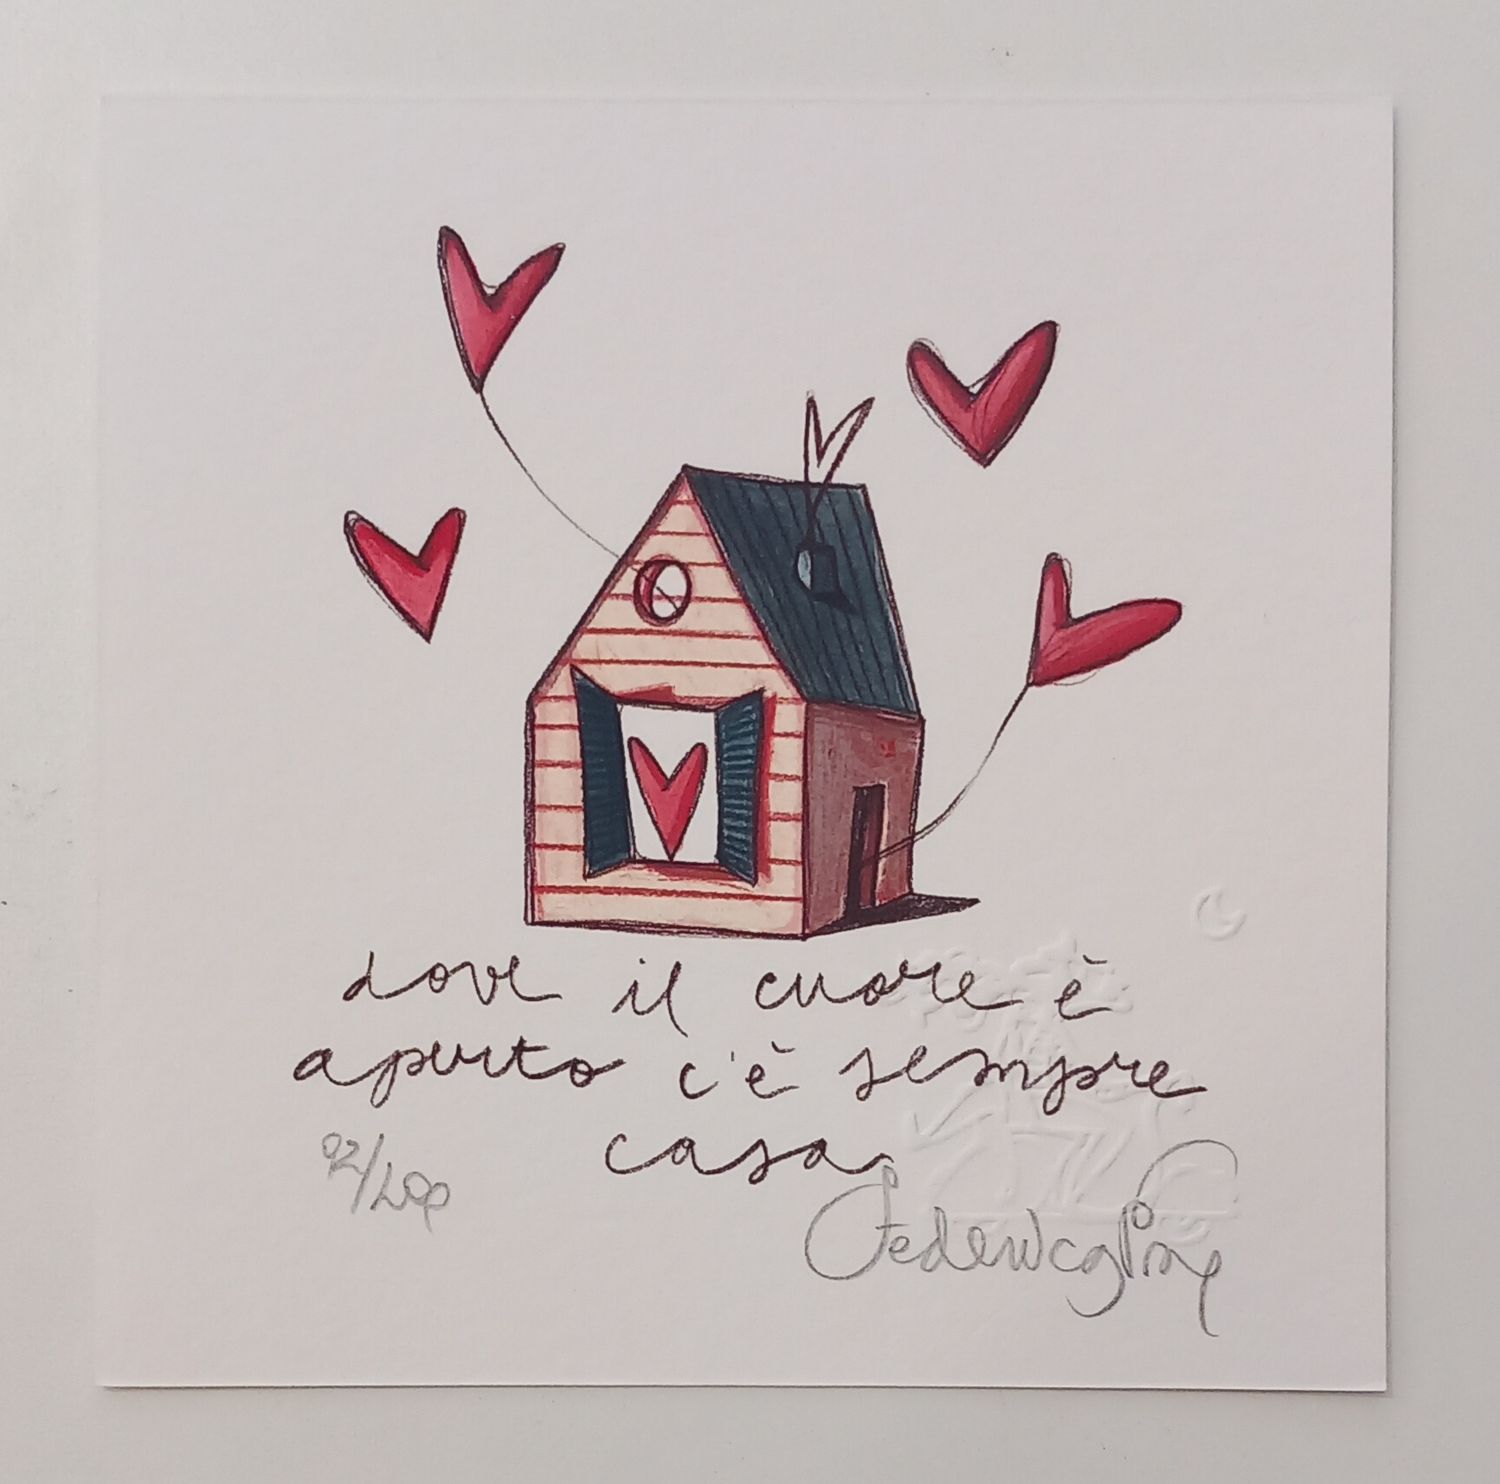 dove il cuore è
aperto c'è sempre
casa
92/200